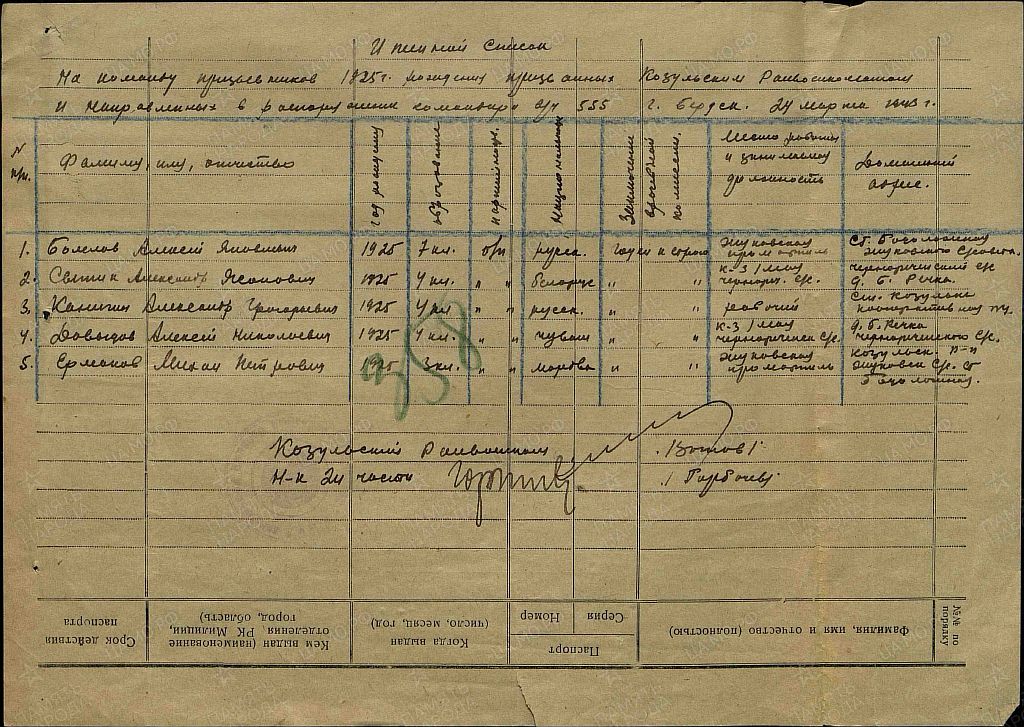 Именной список
На команду призывников 1925 г. рождения призванных Козульским Райвоенкоматом
и направленных в распоряжение командира в/ч 555 г. Бердск. 24 марта 1943 г.
N п/п. Фамилия, имя, отчество год рождения образование партийность национальность Заключение врачебной комиссии. Место работы и занимаемая должность Домашний адрес.
1. Алексей 1925 7 кл. б/п русск. годен к строю Жуковская промартель Ст. Жуковского С/совета.
2. Александр 1925 4 кл. " " белорус " " к-з 1 мая Черноречен. с/с. Чернореченский с/с д. Б. Речка.
3. Александр Григорьевич 1925 4 кл " " русск. " " рабочий Ст. Козулька
4. Давыдов Алексей Николаевич 1925 4 кл. " " чуваш " " к-з 1 мая Чернореченск с/с. д. Б. Речка Чернореченского с/с.
5. Ермаков Михаил Петрович 1925 3 кл. " " мордва " " Жуковская промартель Козульск. р-н Жуковск с/с. ст
358
Козульский Райвоенком
Н-к 2й части
№№ по порядку
Фамилия, имя и отчество (полностью)
Паспорт
Серия
Номер
Когда выдан (число, месяц, год)
Кем выдан (наименование отделения РК Милиции, город, область)
Срок действия паспорта
ПАМЯТЬ НАРОДА
ПАМЯТЬ НАРОДА